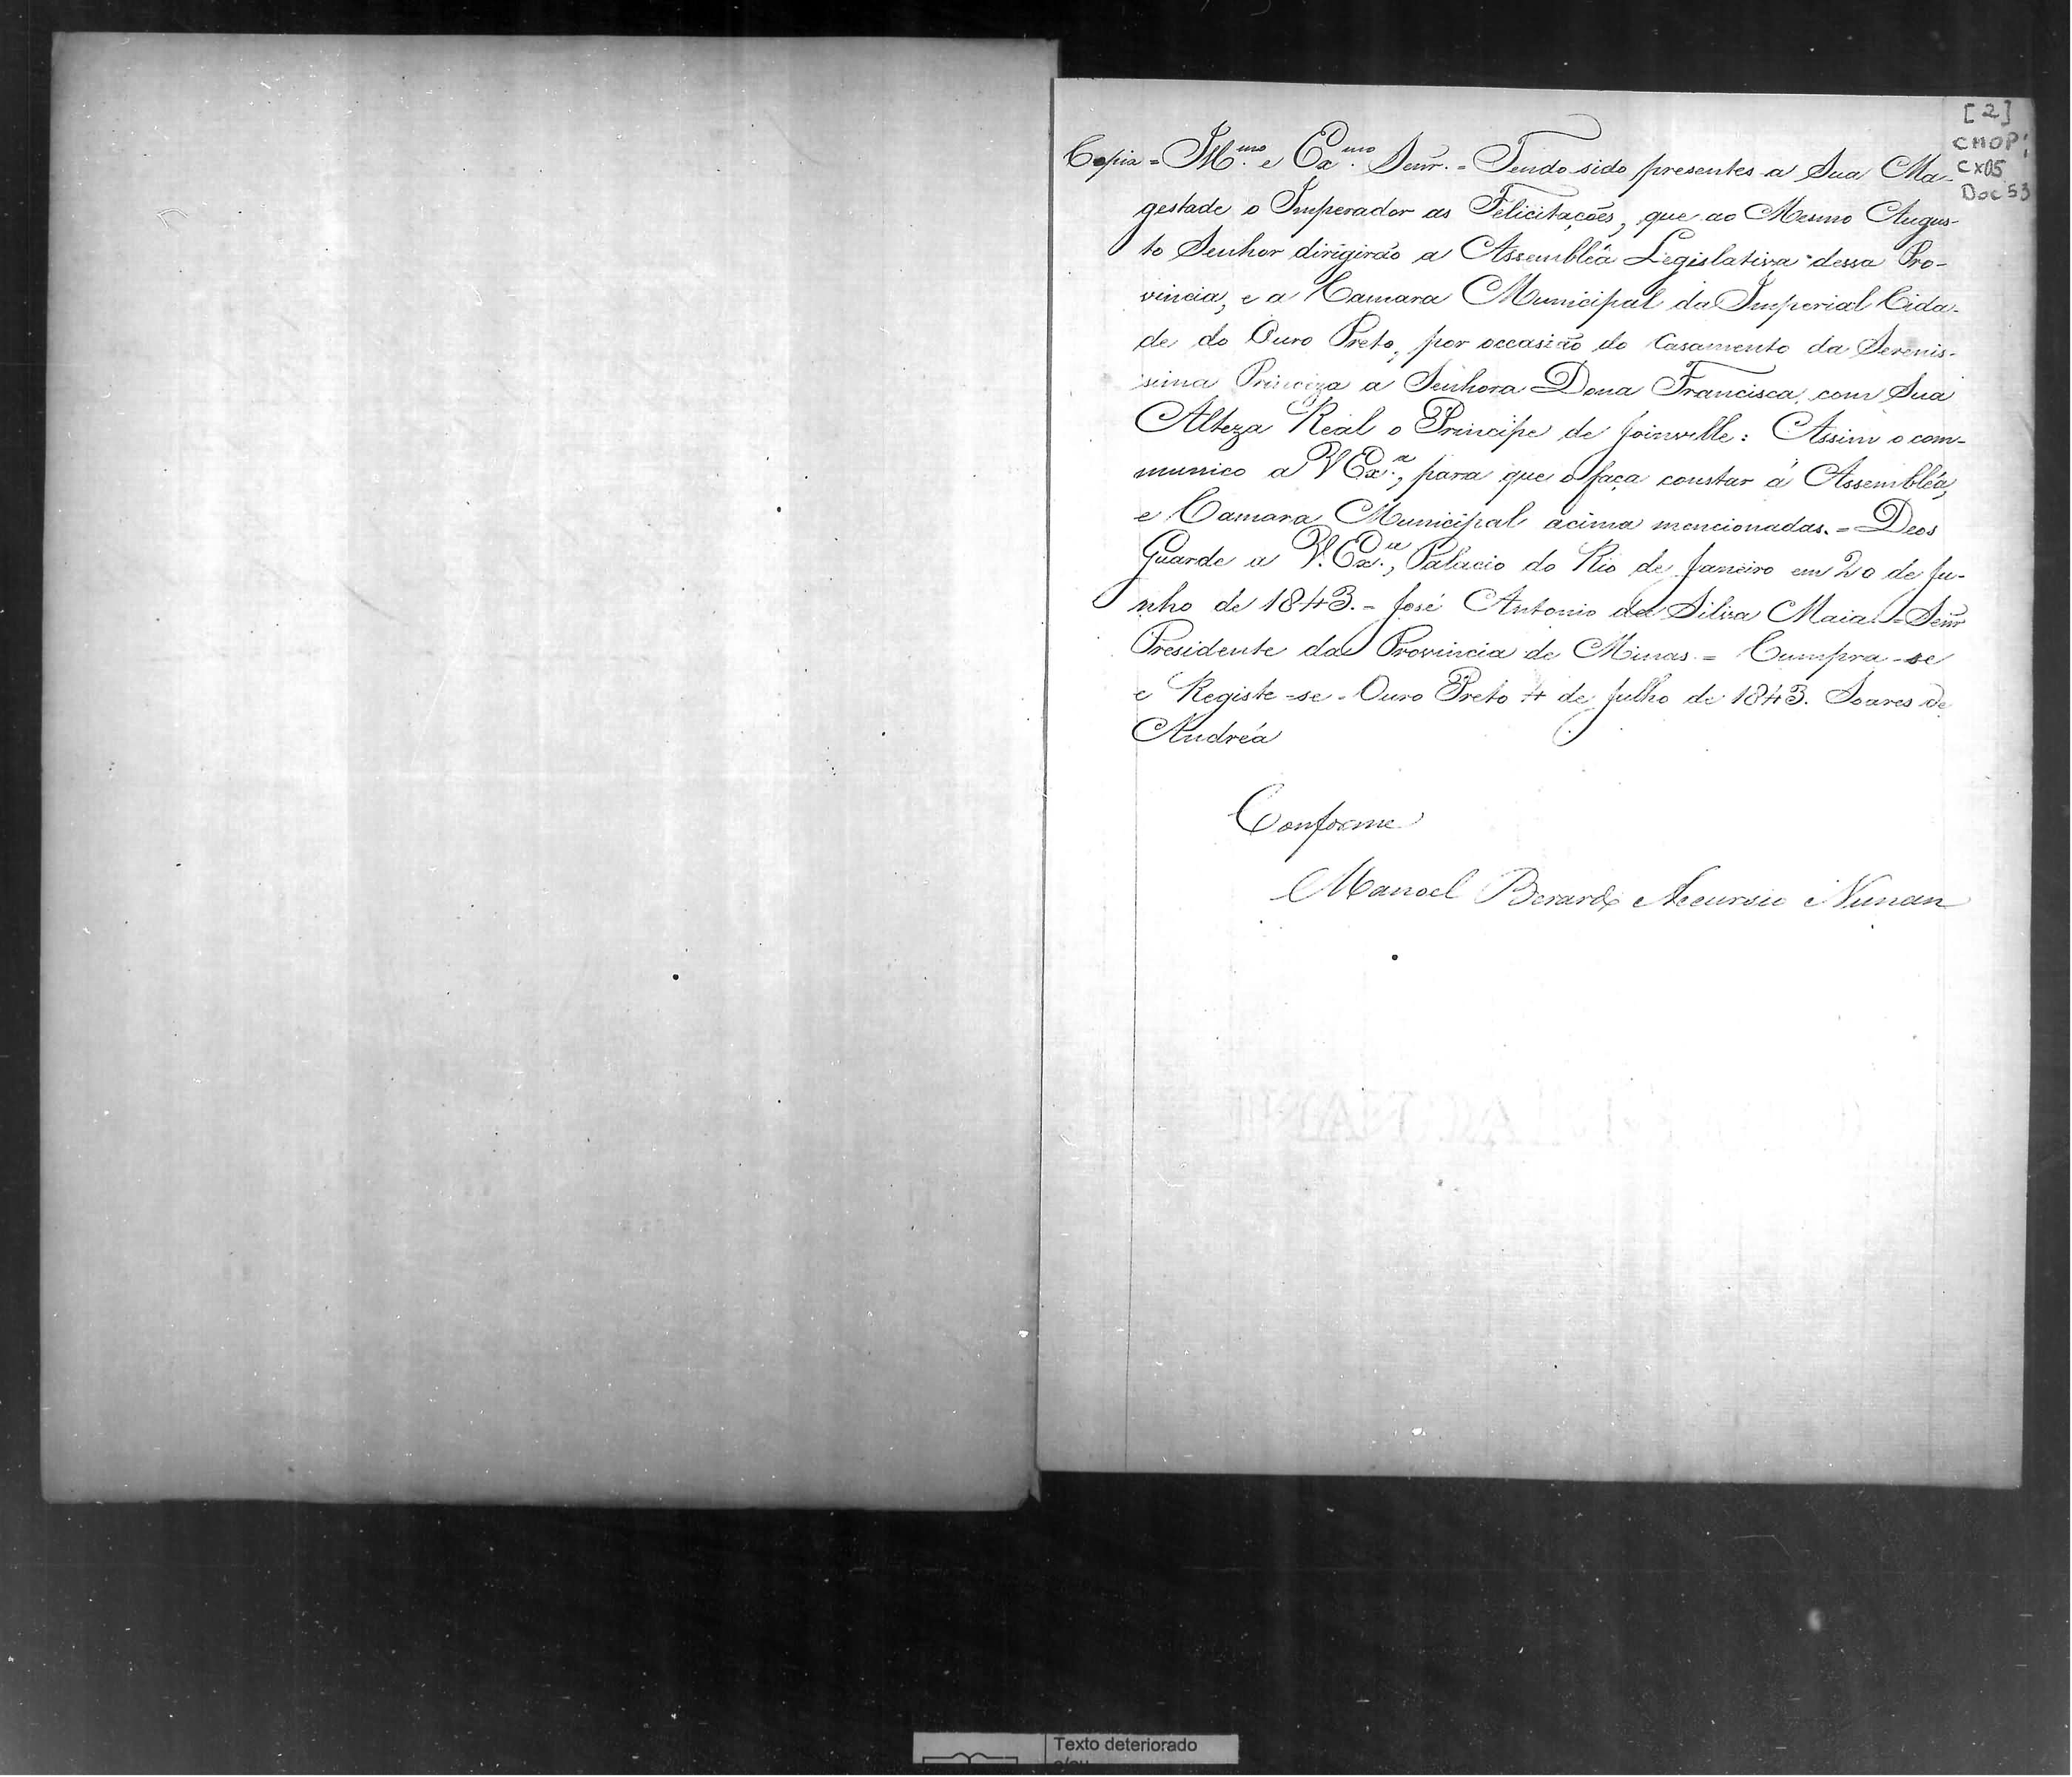 [2]
CMOP;
CX05
Doc 53
Copia = Ill.mo e Ex.mo Senr. = Tendo sido presentes a Sua Ma-
gestade o Imperador as Felicitações, que ao Mesmo Augus-
to Senhor dirigirão a Assembléa Legislativa dessa Pro-
vincia, e a Camara Municipal da Imperial Cida-
de do Ouro Preto, por occasião do Casamento da Serenis-
sima Princeza a Senhora Dona Francisca, com Sua
Alteza Real o Principe de Joinville: Assim o com-
munico a V Ex.a, para que o faça constar á Assembléa,
e Camara Municipal acima mencionadas. = Deos
Guarde a V. Ex.a, Palacio do Rio de Janeiro em 20 de Ju-
nho de 1843. = José Antonio da Silva Maia. = Senr
Presidente da Provincia de Minas = Cumpra-se
e Registe-se. Ouro Preto 4 de Julho de 1843. Soares de
Andréa
Conforme
Manoel Berardo Accursio Nunan
Texto deteriorado